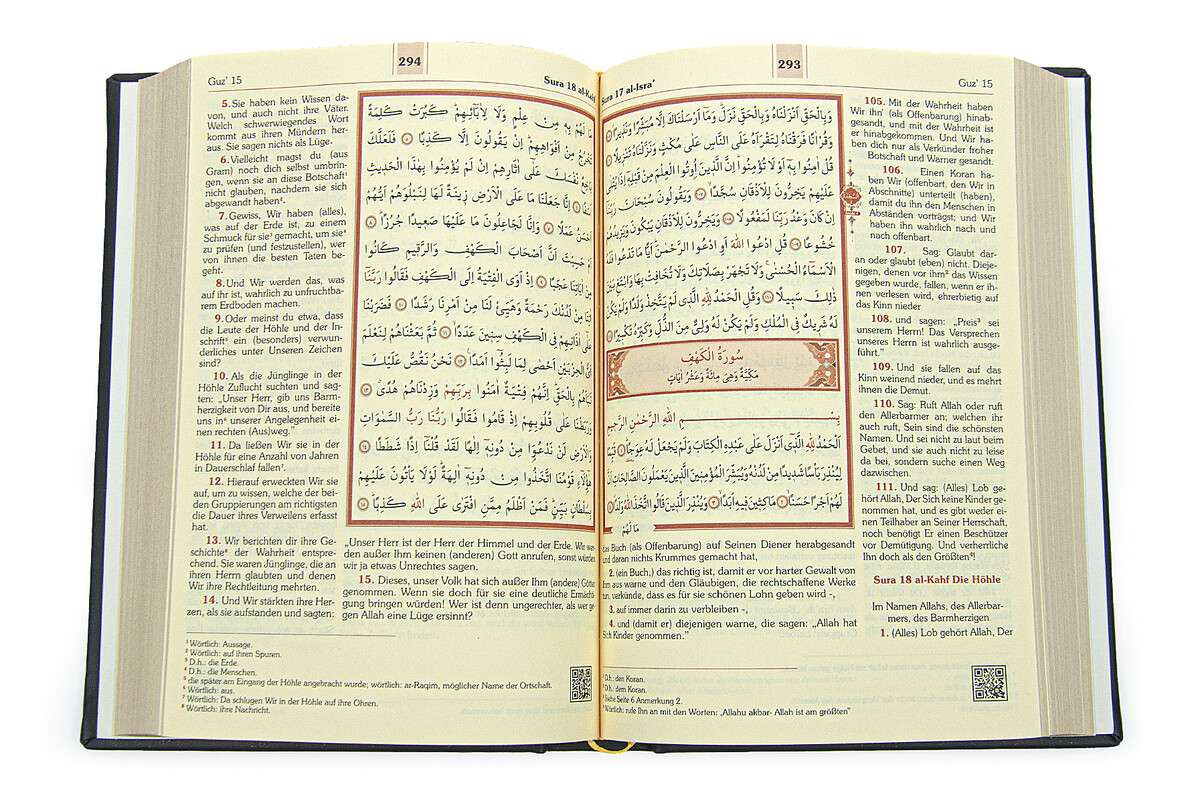 293
Sura 17 al-Isra'
Guz' 15
وَبِالْحَقِّ اَنْزَلْنَاهُ وَبِالْحَقِّ نَزَلَۜ وَمَٓا اَرْسَلْنَاكَ اِلَّا مُبَشِّرًا وَنَذِيرًاۢ
وَقُرْاٰنًا فَرَقْنَاهُ لِتَقْرَاَهُ عَلَى النَّاسِ عَلٰى مُكْثٍ وَنَزَّلْنَاهُ تَنْزِيلًا
قُلْ اٰمِنُوا بِهٖٓ اَوْ لَا تُؤْمِنُواۜ اِنَّ الَّذِينَ اُوتُوا الْعِلْمَ مِنْ قَبْلِهٖٓ اِذَا يُتْلٰى
عَلَيْهِمْ يَخِرُّونَ لِلْاَذْقَانِ سُجَّدًاۙ ١٠٧ وَيَقُولُونَ سُبْحَانَ رَبِّنَٓا
اِنْ كَانَ وَعْدُ رَبِّنَا لَمَفْعُولًا ١٠٨ وَيَخِرُّونَ لِلْاَذْقَانِ يَبْكُونَ وَيَزِيدُهُمْ
خُشُوعًا ١٠٩ قُلِ ادْعُوا اللّٰهَ اَوِ ادْعُوا الرَّحْمٰنَۜ اَيًّا مَا تَدْعُوا فَلَهُ
الْاَسْمَٓاءُ الْحُسْنٰىۚ وَلَا تَجْهَرْ بِصَلَاتِكَ وَلَا تُخَافِتْ بِهَا وَابْتَغِ بَيْنَ
ذٰلِكَ سَبِيلًا ١١٠ وَقُلِ الْحَمْدُ لِلّٰهِ الَّذِى لَمْ يَتَّخِذْ وَلَدًا وَلَمْ يَكُنْ
لَهُ شَرِيكٌ فِى الْمُلْكِ وَلَمْ يَكُنْ لَهُ وَلِىٌّ مِنَ الذُّلِّ وَكَبِّرْهُ تَكْبِيرًا
سُورَةُ الْكَهْفِ
مَكِّيَّةٌ وَهِىَ مِائَةٌ وَعَشْرُ اٰيَاتٍ
بِسْمِ اللّٰهِ الرَّحْمٰنِ الرَّحِيمِ
اَلْحَمْدُ لِلّٰهِ الَّذِٓى اَنْزَلَ عَلٰى عَبْدِهِ الْكِتَابَ وَلَمْ يَجْعَلْ لَهُ عِوَجًا ١ قَيِّمًا
لِيُنْذِرَ بَأْسًا شَدِيدًا مِنْ لَدُنْهُ وَيُبَشِّرَ الْمُؤْمِنِينَ الَّذِينَ يَعْمَلُونَ الصَّالِحَاتِ اَنَّ
لَهُمْ اَجْرًا حَسَنًا ٢ مَاكِثِينَ فِيهِ اَبَدًا ٣ وَيُنْذِرَ الَّذِينَ قَالُوا اتَّخَذَ اللّٰهُ وَلَدًا ٤
مَا لَهُمْ
105. Mit der Wahrheit haben
Wir ihn¹ (als Offenbarung) hinab-
gesandt, und mit der Wahrheit ist
er hinabgekommen. Und Wir ha-
ben dich nur als Verkünder froher
Botschaft und Warner gesandt.
106. Einen Koran ha-
ben Wir (offenbart, den Wir in
Abschnitte) unterteilt (haben),
damit du ihn den Menschen in
Abständen vorträgst; und Wir
haben ihn wahrlich nach und
nach offenbart.
107. Sag: Glaubt dar-
an oder glaubt (eben) nicht. Dieje-
nigen, denen vor ihm² das Wissen
gegeben wurde, fallen, wenn er ih-
nen verlesen wird, ehrerbietig auf
das Kinn nieder
108. und sagen: „Preis³ sei
unserem Herrn! Das Versprechen
unseres Herrn ist wahrlich ausge-
führt.”
109. Und sie fallen auf das
Kinn weinend nieder, und es mehrt
ihnen die Demut.
110. Sag: Ruft Allah oder ruft
den Allerbarmer an; welchen ihr
auch ruft, Sein sind die schönsten
Namen. Und sei nicht zu laut beim
Gebet, und sie auch nicht zu leise
da bei, sondern suche einen Weg
dazwischen.
111. Und sag: (Alles) Lob ge-
hört Allah, Der Sich keine Kinder ge-
nommen hat, und es gibt weder ei-
nen Teilhaber an Seiner Herrschaft,
noch benötigt Er einen Beschützer
vor Demütigung. Und verherrliche
Ihn doch als den Größten⁴!
Sura 18 al-Kahf Die Höhle
Im Namen Allahs, des Allerbar-
mers, des Barmherzigen
1. (Alles) Lob gehört Allah, Der
das Buch (als Offenbarung) auf Seinen Diener herabgesandt
und daran nichts Krummes gemacht hat,
2. (ein Buch,) das richtig ist, damit er vor harter Gewalt von
Ihm aus warne und den Gläubigen, die rechtschaffene Werke
tun, verkünde, dass es für sie schönen Lohn geben wird -,
3. auf immer darin zu verbleiben -,
4. und (damit er) diejenigen warne, die sagen: „Allah hat
Sich Kinder genommen.”
D.h.: dem Koran.
D.h.: dem Koran.
Siehe Seite 6 Anmerkung 2.
Wörtlich: rufe Ihn an mit den Worten: „Allahu akbar- Allah ist am größten”
Guz' 15
294
Sura 18 al-Kahf
مَا لَهُمْ بِهٖ مِنْ عِلْمٍ وَلَا لِاٰبَٓائِهِمْۜ كَبُرَتْ كَلِمَةً
تَخْرُجُ مِنْ اَفْوَاهِهِمْۜ اِنْ يَقُولُونَ اِلَّا كَذِبًا ٥ فَلَعَلَّكَ
بَاخِعٌ نَفْسَكَ عَلٰٓى اٰثَارِهِمْ اِنْ لَمْ يُؤْمِنُوا بِهٰذَا الْحَدِيثِ
اَسَفًا ٦ اِنَّا جَعَلْنَا مَا عَلَى الْاَرْضِ زِينَةً لَهَا لِنَبْلُوَهُمْ اَيُّهُمْ
اَحْسَنُ عَمَلًا ٧ وَاِنَّا لَجَاعِلُونَ مَا عَلَيْهَا صَعِيدًا جُرُزًاۜ ٨
اَمْ حَسِبْتَ اَنَّ اَصْحَابَ الْكَهْفِ وَالرَّقِيمِ كَانُوا
مِنْ اٰيَاتِنَا عَجَبًا ٩ اِذْ اَوَى الْفِتْيَةُ اِلَى الْكَهْفِ فَقَالُوا رَبَّنَٓا
اٰتِنَا مِنْ لَدُنْكَ رَحْمَةً وَهَيِّئْ لَنَا مِنْ اَمْرِنَا رَشَدًا ١٠ فَضَرَبْنَا
عَلٰٓى اٰذَانِهِمْ فِى الْكَهْفِ سِنِينَ عَدَدًاۙ ١١ ثُمَّ بَعَثْنَاهُمْ لِنَعْلَمَ
اَىُّ الْحِزْبَيْنِ اَحْصٰى لِمَا لَبِثُٓوا اَمَدًا۟ ١٢ نَحْنُ نَقُصُّ عَلَيْكَ
نَبَاَهُمْ بِالْحَقِّۜ اِنَّهُمْ فِتْيَةٌ اٰمَنُوا بِرَبِّهِمْ وَزِدْنَاهُمْ هُدًىۗ ١٣
وَرَبَطْنَا عَلٰى قُلُوبِهِمْ اِذْ قَامُوا فَقَالُوا رَبُّنَا رَبُّ السَّمٰوَاتِ
وَالْاَرْضِ لَنْ نَدْعُوَا۬ مِنْ دُونِهٖٓ اِلٰهًا لَقَدْ قُلْنَٓا اِذًا شَطَطًا ١٤
هٰٓؤُ۬لَٓاءِ قَوْمُنَا اتَّخَذُوا مِنْ دُونِهٖٓ اٰلِهَةًۜ لَوْلَا يَأْتُونَ عَلَيْهِمْ
بِسُلْطَانٍ بَيِّنٍۜ فَمَنْ اَظْلَمُ مِمَّنِ افْتَرٰى عَلَى اللّٰهِ كَذِبًاۜ ١٥
5. Sie haben kein Wissen da-
von, und auch nicht ihre Väter.
Welch schwerwiegendes Wort
kommt aus ihren Mündern her-
aus. Sie sagen nichts als Lüge.
6. Vielleicht magst du (aus
Gram) noch dich selbst umbrin-
gen, wenn sie an diese Botschaft¹
nicht glauben, nachdem sie sich
abgewandt haben².
7. Gewiss, Wir haben (alles),
was auf der Erde ist, zu einem
Schmuck für sie³ gemacht, um sie⁴
zu prüfen (und festzustellen), wer
von ihnen die besten Taten be-
geht.
8. Und Wir werden das, was
auf ihr ist, wahrlich zu unfruchtba-
rem Erdboden machen.
9. Oder meinst du etwa, dass
die Leute der Höhle und der In-
schrift⁵ ein (besonders) verwun-
derliches unter Unseren Zeichen
sind?
10. Als die Jünglinge in der
Höhle Zuflucht suchten und sag-
ten: „Unser Herr, gib uns Barm-
herzigkeit von Dir aus, und bereite
uns in⁶ unserer Angelegenheit ei-
nen rechten (Aus)weg.”
11. Da ließen Wir sie in der
Höhle für eine Anzahl von Jahren
in Dauerschlaf fallen⁷.
12. Hierauf erweckten Wir sie
auf, um zu wissen, welche der bei-
den Gruppierungen am richtigsten
die Dauer ihres Verweilens erfasst
hat.
13. Wir berichten dir ihre Ge-
schichte⁸ der Wahrheit entspre-
chend. Sie waren Jünglinge, die an
ihren Herrn glaubten und denen
Wir ihre Rechtleitung mehrten.
14. Und Wir stärkten ihre Her-
zen, als sie aufstanden und sagten:
„Unser Herr ist der Herr der Himmel und der Erde. Wir wer-
den außer Ihm keinen (anderen) Gott anrufen, sonst würden
wir ja etwas Unrechtes sagen.
15. Dieses, unser Volk hat sich außer Ihm (andere) Götter
genommen. Wenn sie doch für sie eine deutliche Ermächti-
gung bringen würden! Wer ist denn ungerechter, als wer ge-
gen Allah eine Lüge ersinnt?
¹ Wörtlich: Aussage.
² Wörtlich: auf ihren Spuren.
³ D.h.: die Erde.
⁴ D.h.: die Menschen.
⁵ die später am Eingang der Höhle angebracht wurde; wörtlich: ar-Raqim, möglicher Name der Ortschaft.
⁶ Wörtlich: aus.
⁷ Wörtlich: Da schlugen Wir in der Höhle auf ihre Ohren.
⁸ Wörtlich: ihre Nachricht.